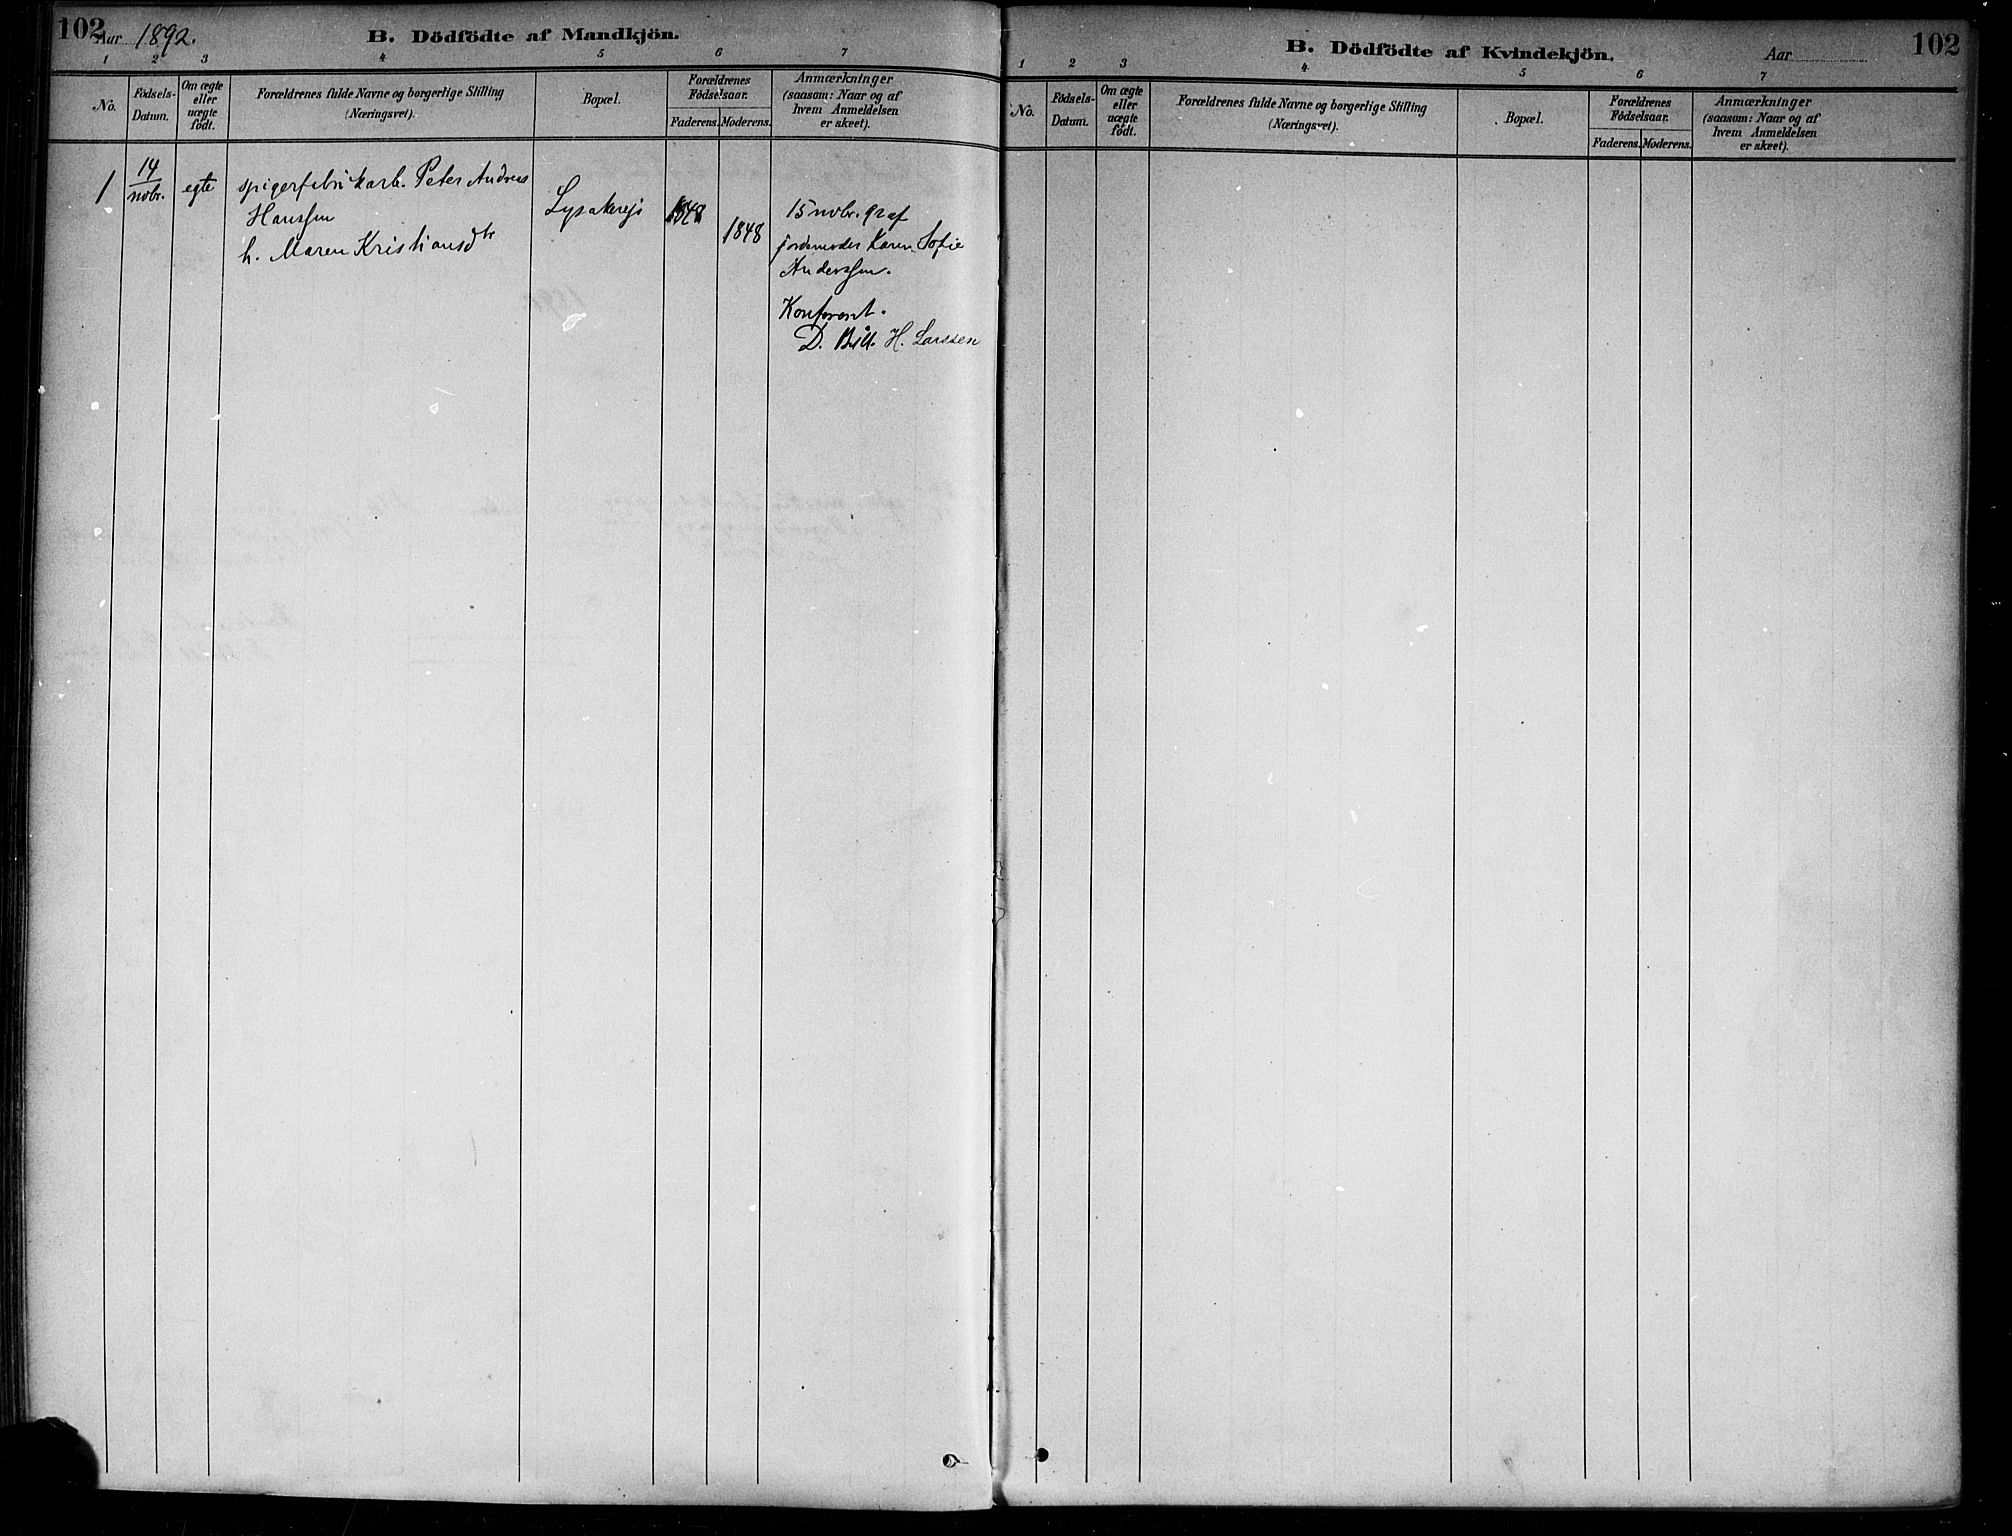 102
Aar 1892.
B. Dödfödte af Mandkjön.
1 2 3 4 5 6 7
No.
Födsels-
Datum.
Om ægte
eller
uægte
födt.
Forældrenes fulde Navne og borgerlige Stilling
(Næringsvei).
Bopæl.
Forældrenes
Födselsaar.
Faderens. Moderens.
Anmærkninger
(saasom: Naar og af
hvem Anmeldelsen
er skeet).
1
14
novbr.
egte
spigerfabrikarb. Peter Andreas
Hanssen
h. Maren Kristiansdtr
Lysakerejs
1848
1848
15 novbr. 92 af
jordemoder Karen Sofie
Anderssen.
Konfereret.
D. H. Larssen
B. Dödfödte af Kvindekjön.
Aar
102
1 2 3 4 5 6 7
No.
Födsels-
Datum.
Om ægte
eller
uægte
födt.
Forældrenes fulde Navne og borgerlige Stilling
(Næringsvei).
Bopæl.
Forældrenes
Födselsaar.
Faderens. Moderens.
Anmærkninger
(saasom: Naar og af
hvem Anmeldelsen
er skeet).